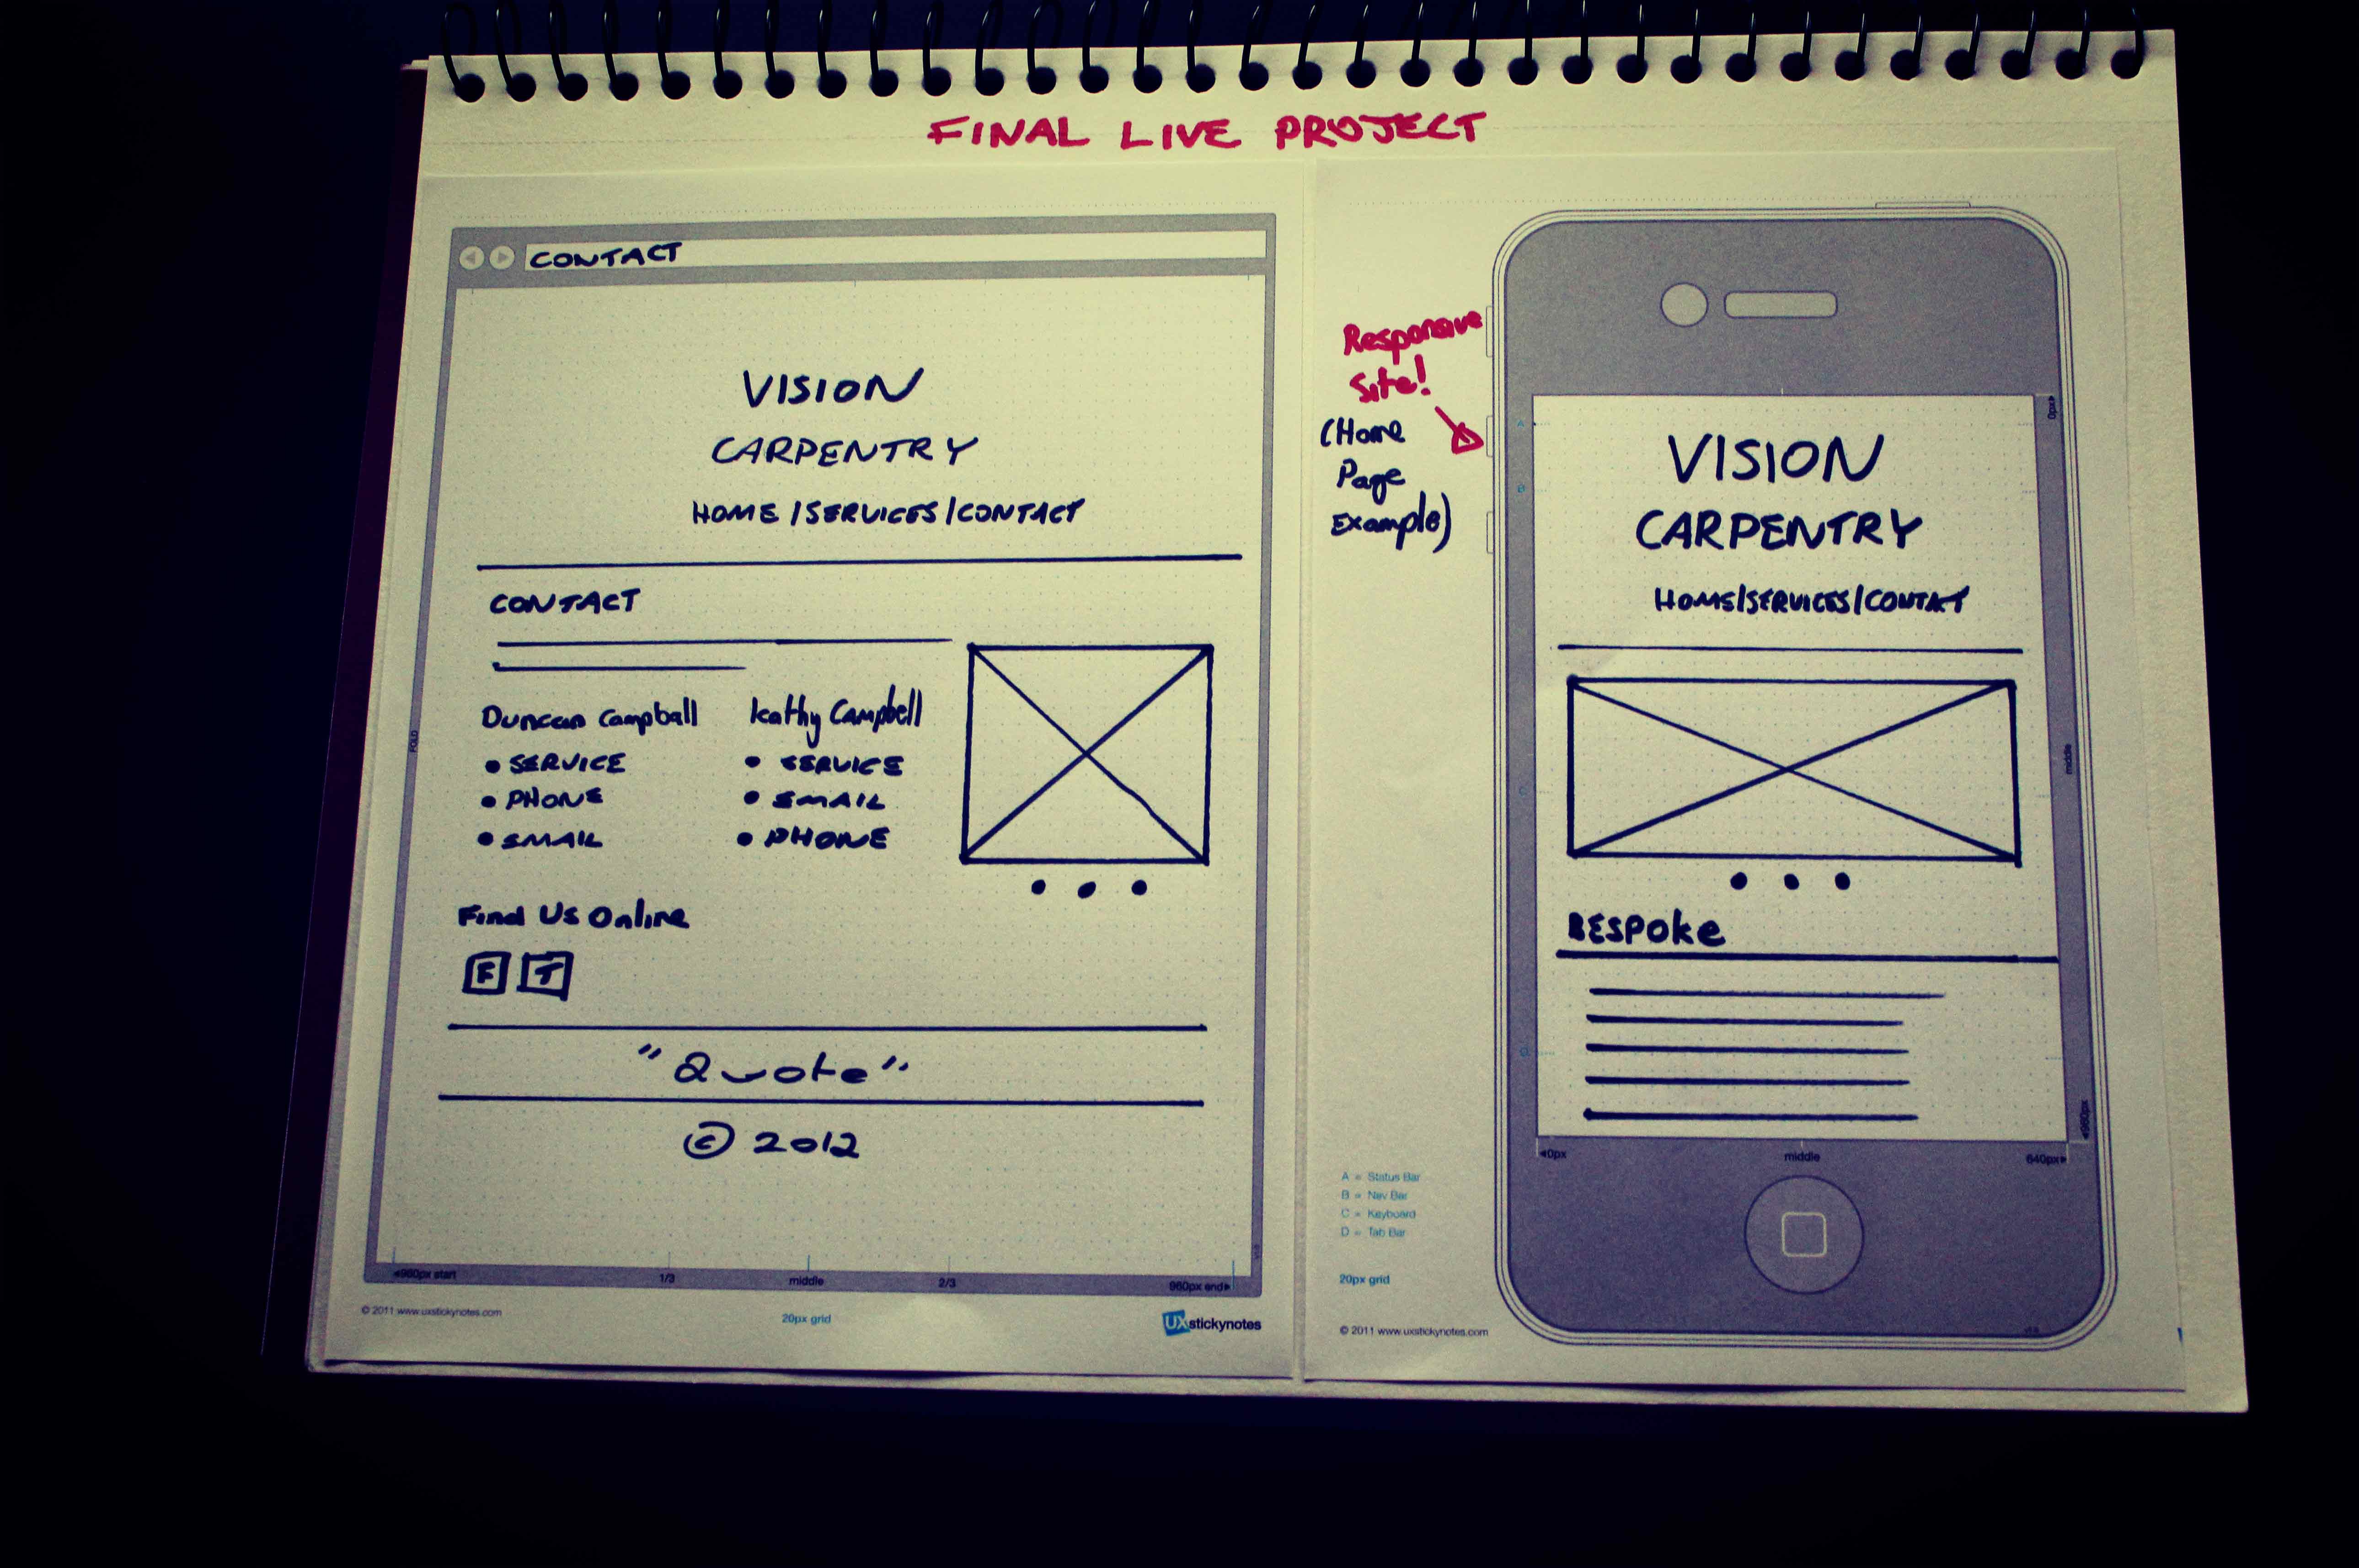 FINAL LIVE PROJECT
CONTACT
VISION
CARPENTRY
HOME / SERVICES / CONTACT
CONTACT
Duncan Campball
• SERVICE
• PHONE
• EMAIL
Kathy Campbell
• SERVICE
• EMAIL
• PHONE
Find Us Online
F T
"Quote"
© 2012
FOLD
◀960px start 1/3 middle 2/3 960px end▶
© 2011 www.uxstickynotes.com
20px grid
UXstickynotes
Responsive
Site!
(Home
Page
Example)
VISION
CARPENTRY
HOME/SERVICES/CONTACT
BESPOKE
A
B
C
D
0px▶
middle
960px▶
◀0px middle 640px▶
A = Status Bar
B = Nav Bar
C = Keyboard
D = Tab Bar
20px grid
© 2011 www.uxstickynotes.com